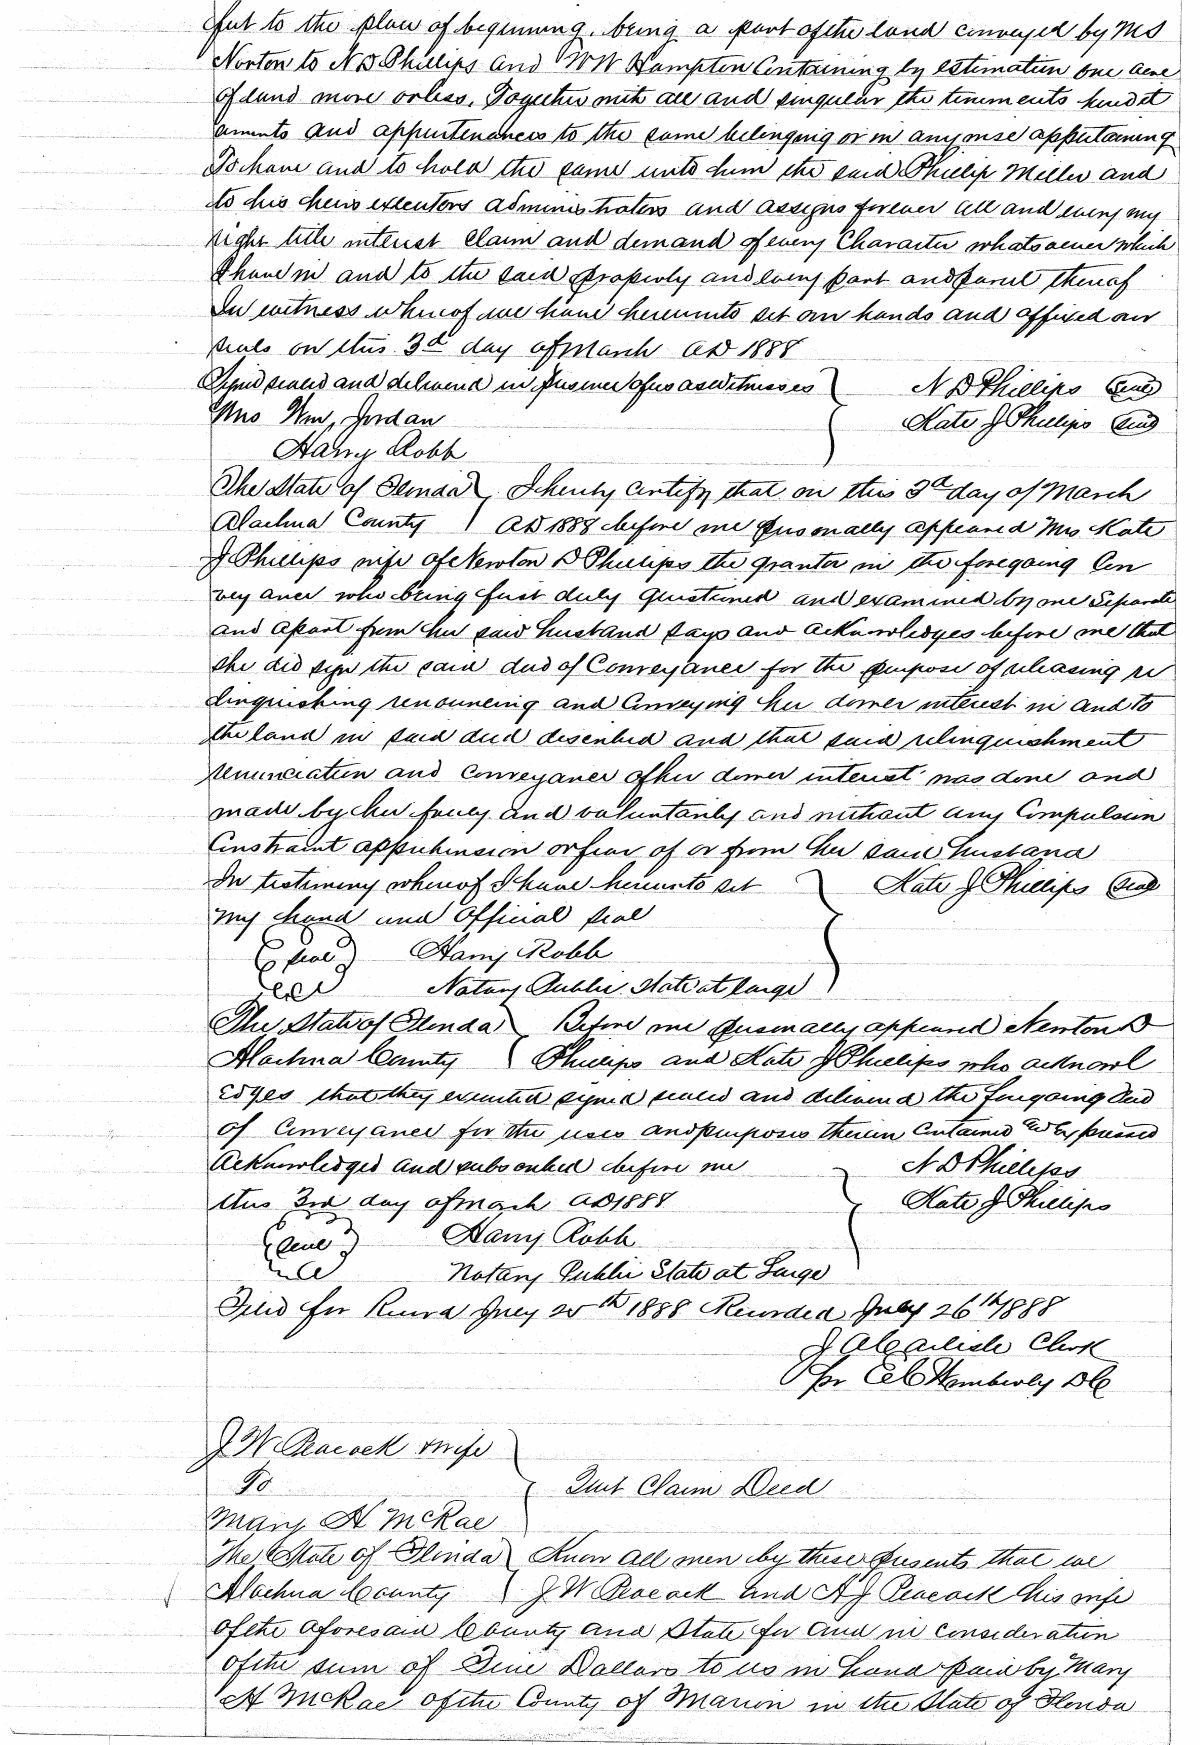 feet to the place of beginning. being a part of the land conveyed by M S
Norton to N D Phillips and W W Hampton Containing by estimation one acre
of land more or less, Together with all and singular the tenements heredit
aments and appurtenances to the same belonging or in anywise appertaining
To have and to hold the same unto him the said Phillip Miller and
to his heirs executors administrators and assigns forever all and every my
right title interest claim and demand of every Character whatsoever which
I have in and to the said property and every part and parcel thereof
In witness whereof we have hereunto set our hands and affixed our
seals on this 3d day of March AD 1888
Signed sealed and delivered in presence of us as witnesses N D Phillips Seal
Mrs Wm, Jordan Kate J Phillips Seal
Harry Robb
The State of Florida I hereby certify that on this 3d day of March
Alachua County AD 1888 before me personally appeared Mrs Kate
J Phillips wife of Newton D Phillips the grantor in the foregoing Con
veyance who being first duly questioned and examined by me separate
and apart from her said husband says and acknowledges before me that
she did sign the said deed of Conveyance for the purpose of releasing re
linquishing renouncing and Conveying her dower interest in and to
the land in said deed described and that said relinquishment
renunciation and conveyance of her dower interest was done and
made by her freely and voluntarily and without any Compulsion
Constraint apprehension or fear of or from her said husband
In testimony whereof I have hereunto set Kate J Phillips Seal
my hand and Official seal
seal Harry Robb
Notary Public State at Large
The State of Florida Before me personally appeared Newton D
Alachua County Phillips and Kate J Phillips who acknowl
edges that they executed signed sealed and delivered the foregoing Deed
of Conveyance for the uses and purposes therein contained & expressed
Acknowledged and subscribed before me N D Phillips
this 3rd day of March AD 1888 Kate J Phillips
Seal Harry Robb
Notary Public State at Large
Filed for Record July 25th 1888 Recorded July 26th 1888
J A Carlisle Clerk
per Wemberly DC
J W Peacock & wife
To Quit Claim Deed
Mary H McRae
The State of Florida Know all men by these presents that we
Alachua County J W Peacock and A J Peacock his wife
of the aforesaid County and State for and in consideration
of the sum of Five Dollars to us in hand paid by Mary
H McRae of the County of Marion in the State of Florida